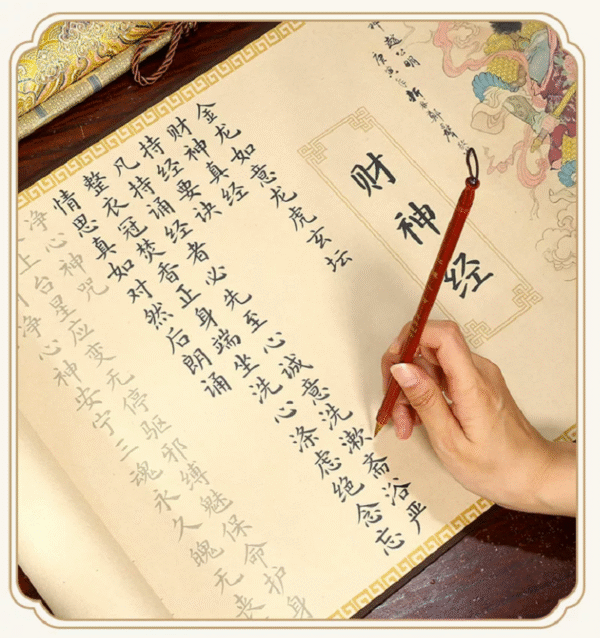 赵公明
财神经
金龙如意龙虎玄坛
财神真经
持经要诀
凡持诵经者必先至心诚意洗漱斋浴严
整衣冠焚香正身端坐洗心涤虑绝念忘
情思真如对然后朗诵
净心神咒
上台星应变无停驱邪缚魅保命护身
净心神安宁三魂永久魄无丧